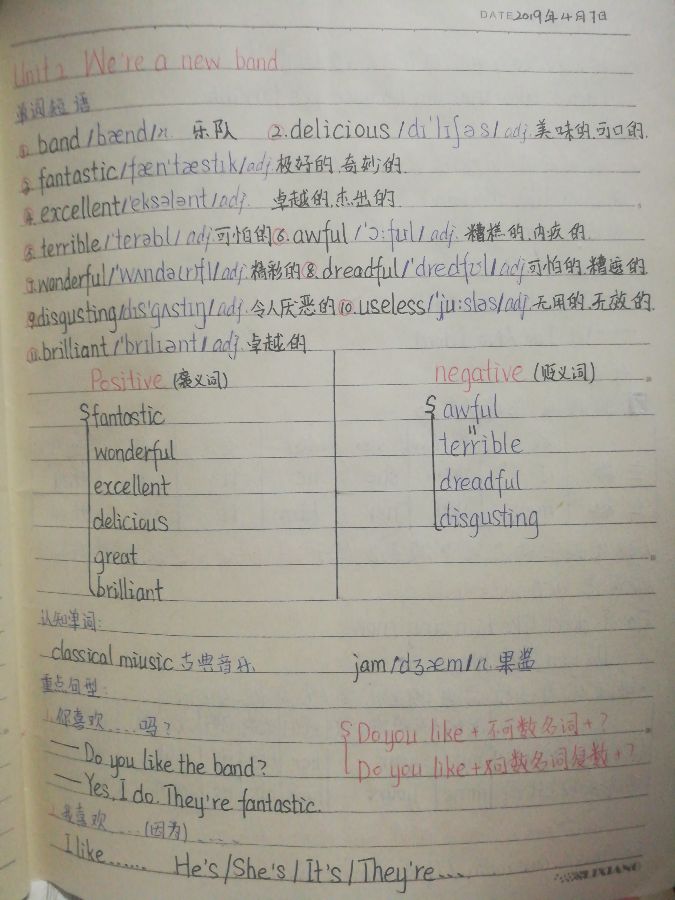 DATE 2019年4月7日
Unit 2 We're a new band
单词短语
①band/bænd/n. 乐队 ②.delicious/dɪ'lɪʃəs/adj.美味的,可口的.
③fantastic/fæn'tæstɪk/adj.极好的,奇妙的
④.excellent/'eksələnt/adj. 卓越的,杰出的
⑤.terrible/'terəbl/adj.可怕的⑥.awful/'ɔ:fʊl/adj.糟糕的,内疚的.
⑦.wonderful/'wʌndə(r)fl/adj.精彩的⑧.dreadful/'dredfʊl/adj可怕的,糟透的.
⑨disgusting/dɪs'gʌstɪŋ/adj.令人厌恶的⑩.useless/'ju:sləs/adj.无用的,无效的.
⑪.brilliant/'brɪliənt/adj.卓越的
Positive (褒义词) negative (贬义词)
fantastic awful
wonderful terrible
excellent dreadful
delicious disgusting
great
brilliant
认知单词:
classical miusic 古典音乐 jam/dʒæm/n.果酱
重点句型:
1.你喜欢....吗? Do you like + 不可数名词+?
—Do you like the band? Do you like +可数名词复数+?
—Yes, I do. They're fantastic.
2.我喜欢.....(因为).....
I like...... He's/She's/It's/They're...